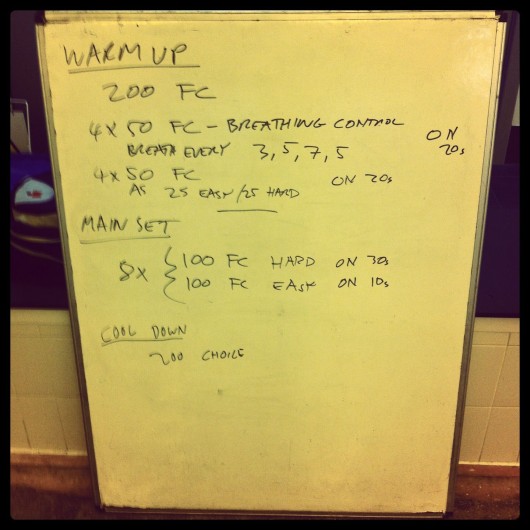 WARM UP
200 FC
4 x 50 FC - BREATHING CONTROL ON
BREATH EVERY 3, 5, 7, 5 20s
4 x 50 FC ON 20s
AS 25 EASY/25 HARD
MAIN SET
8x { 100 FC HARD ON 30s
100 FC EASY ON 10s
COOL DOWN
200 CHOICE